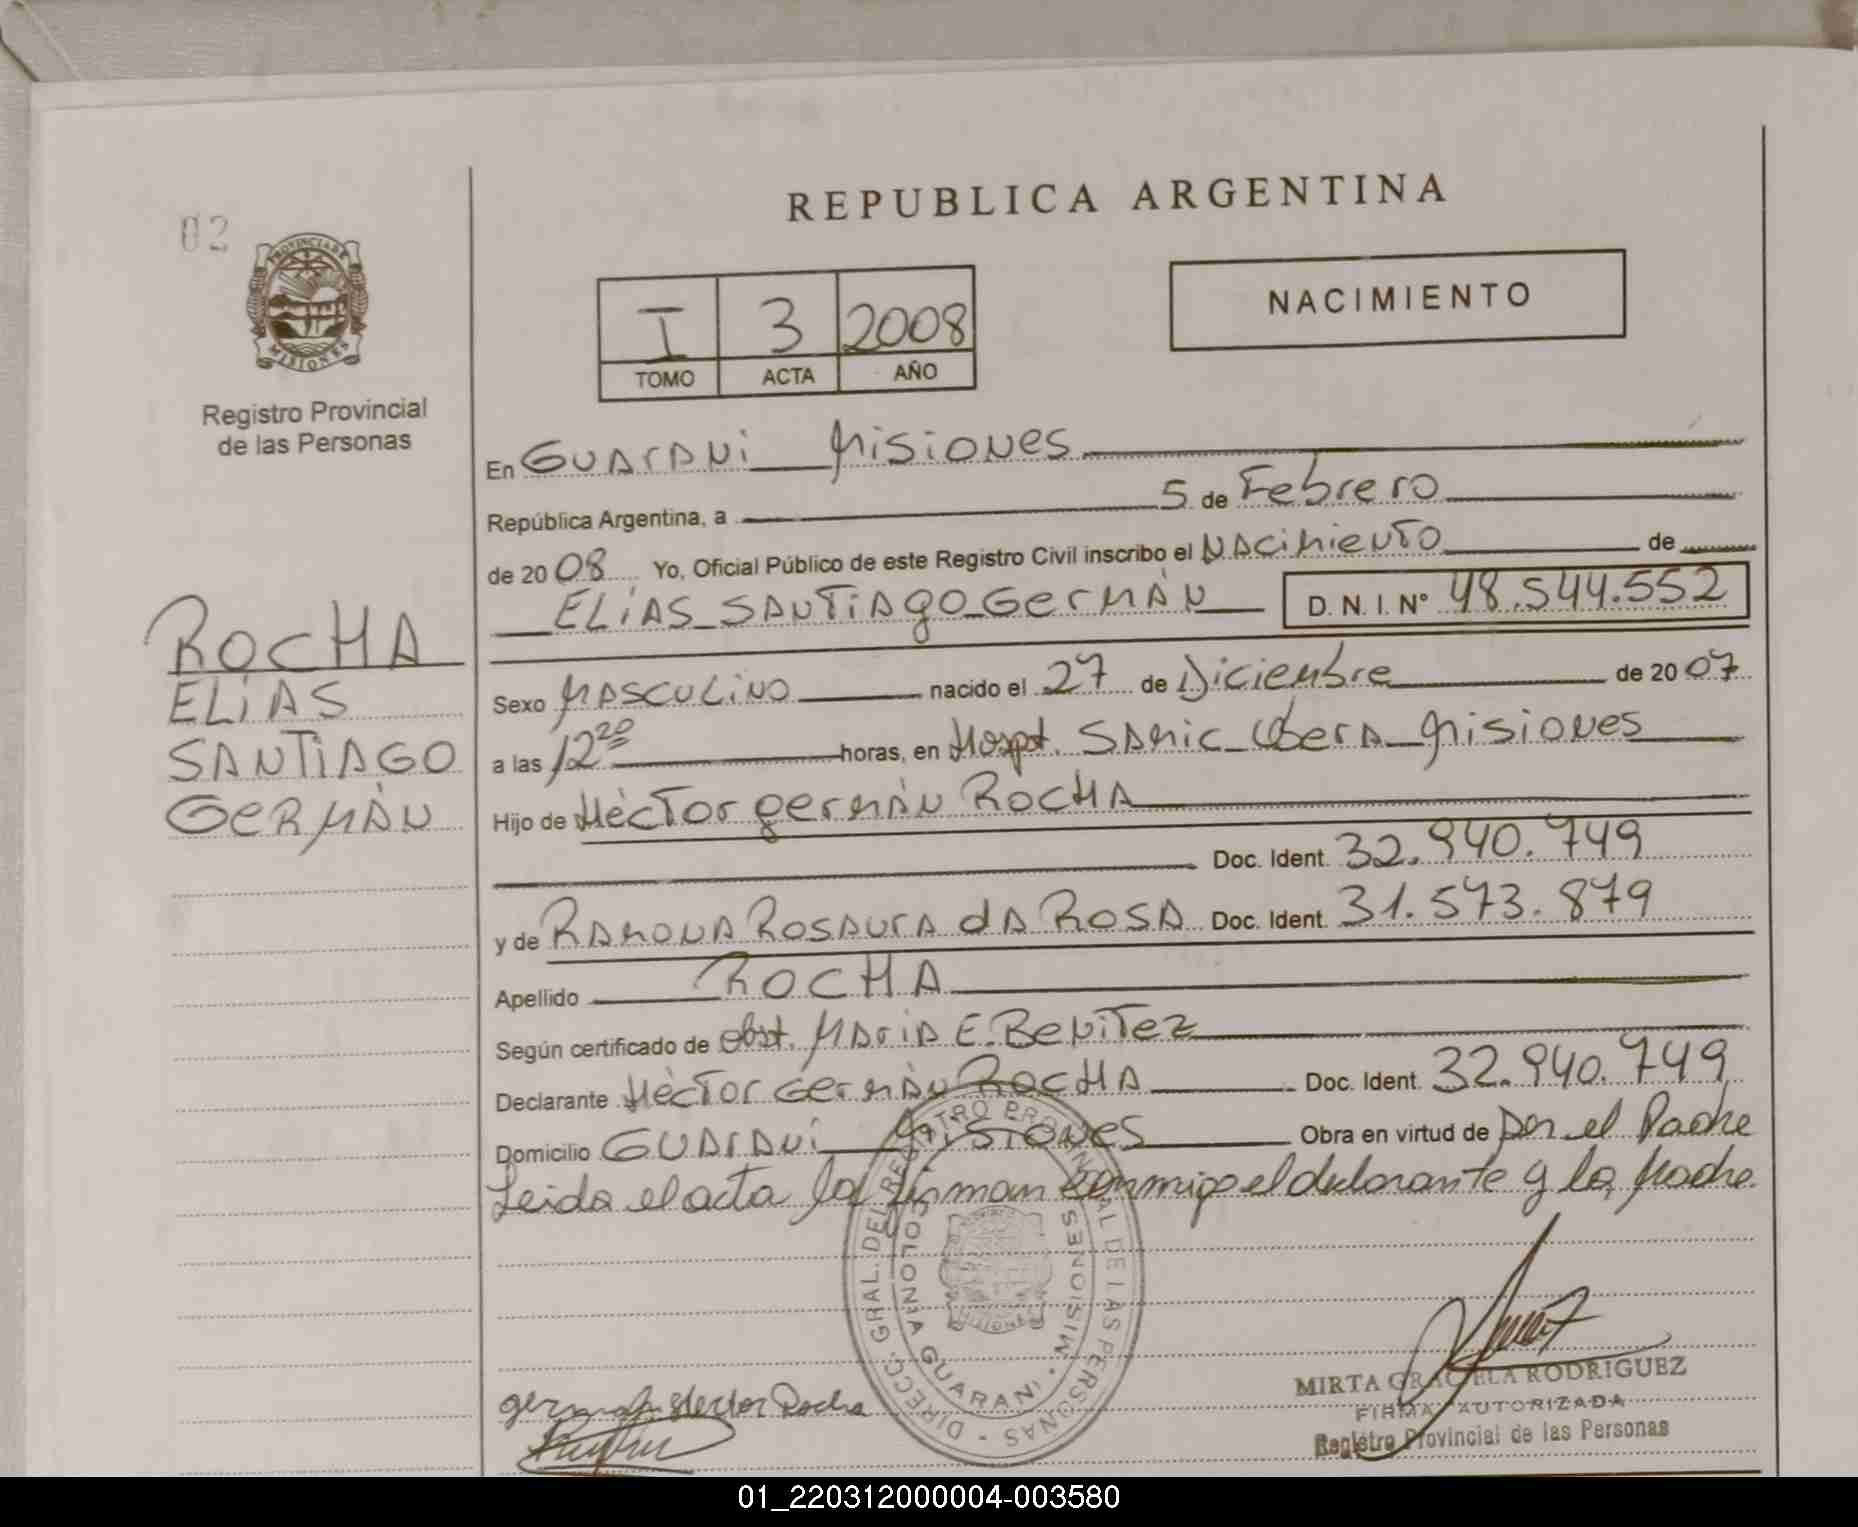 02
PROVINCIA DE
MISIONES
Registro Provincial
de las Personas
REPUBLICA ARGENTINA
I 3 2008
TOMO ACTA AÑO
NACIMIENTO
En Guarani Misiones
República Argentina, a 5 de Febrero
de 2008 Yo, Oficial Público de este Registro Civil inscribo el Nacimiento de
ELíAS SANTiAgo GerMÁN D. N. I. N° 48.544.552
ROCHA
ELíAS
SANTiAGO
GERMÁN
Sexo MASCULiNO nacido el 27 de Diciembre de 2007
a las 12 20 horas, en Hospt. SAMic Obera Misiones
Hijo de Hèctor germàn ROCHA
Doc. Ident. 32.940.749
y de RAMONA ROSAURA dA ROSA Doc. Ident. 31.573.879
Apellido ROCHA
Según certificado de obst. MAriA E. BeNiTez
Declarante Hèctor Germàn ROCHA Doc. Ident. 32.940.749
Domicilio GUArANi Misiones Obra en virtud de por el Padre
Leida el acta la firman conmigo el declarante y la Madre.
DIRECC. GRAL. DEL REGISTRO PROVINCIAL DE LAS PERSONAS
COLONIA GUARANI · MISIONES
MISIONES
german Hector Rocha
MIRTA GRACIELA RODRIGUEZ
FIRMA AUTORIZADA
Registro Provincial de las Personas
01_220312000004-003580